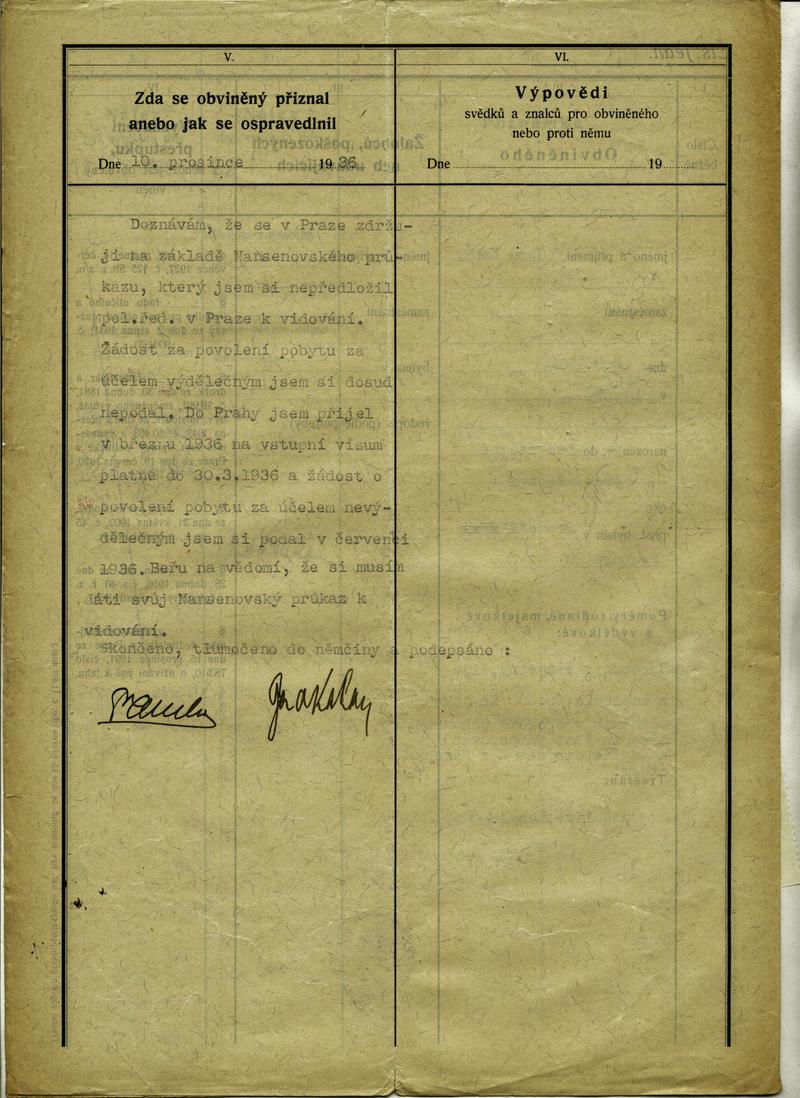 V.
Zda se obviněný přiznal
anebo jak se ospravedlnil
Dne 10. prosince 1936.
Doznávám, že se v Praze zdržu-
ji na základě Nansenovského prů-
kazu, který jsem si nepředložil
pol.řed. v Praze k vidování.
Žádost za povolení pobytu za
účelem výdělečným jsem si dosud
nepodal. Do Prahy jsem přijel
v březnu 1936 na vstupní visum
platné do 30.3.1936 a žádost o
povolení pobytu za účelem nevý-
dělečným jsem si podal v červenci
1936. Beru na vědomí, že si musím
dáti svůj Nansenovský průkaz k
vidování.
Skončeno, tlumočeno do němčiny a podepsáno :
VI.
Výpovědi
svědků a znalců pro obviněného
nebo proti němu
Dne 19